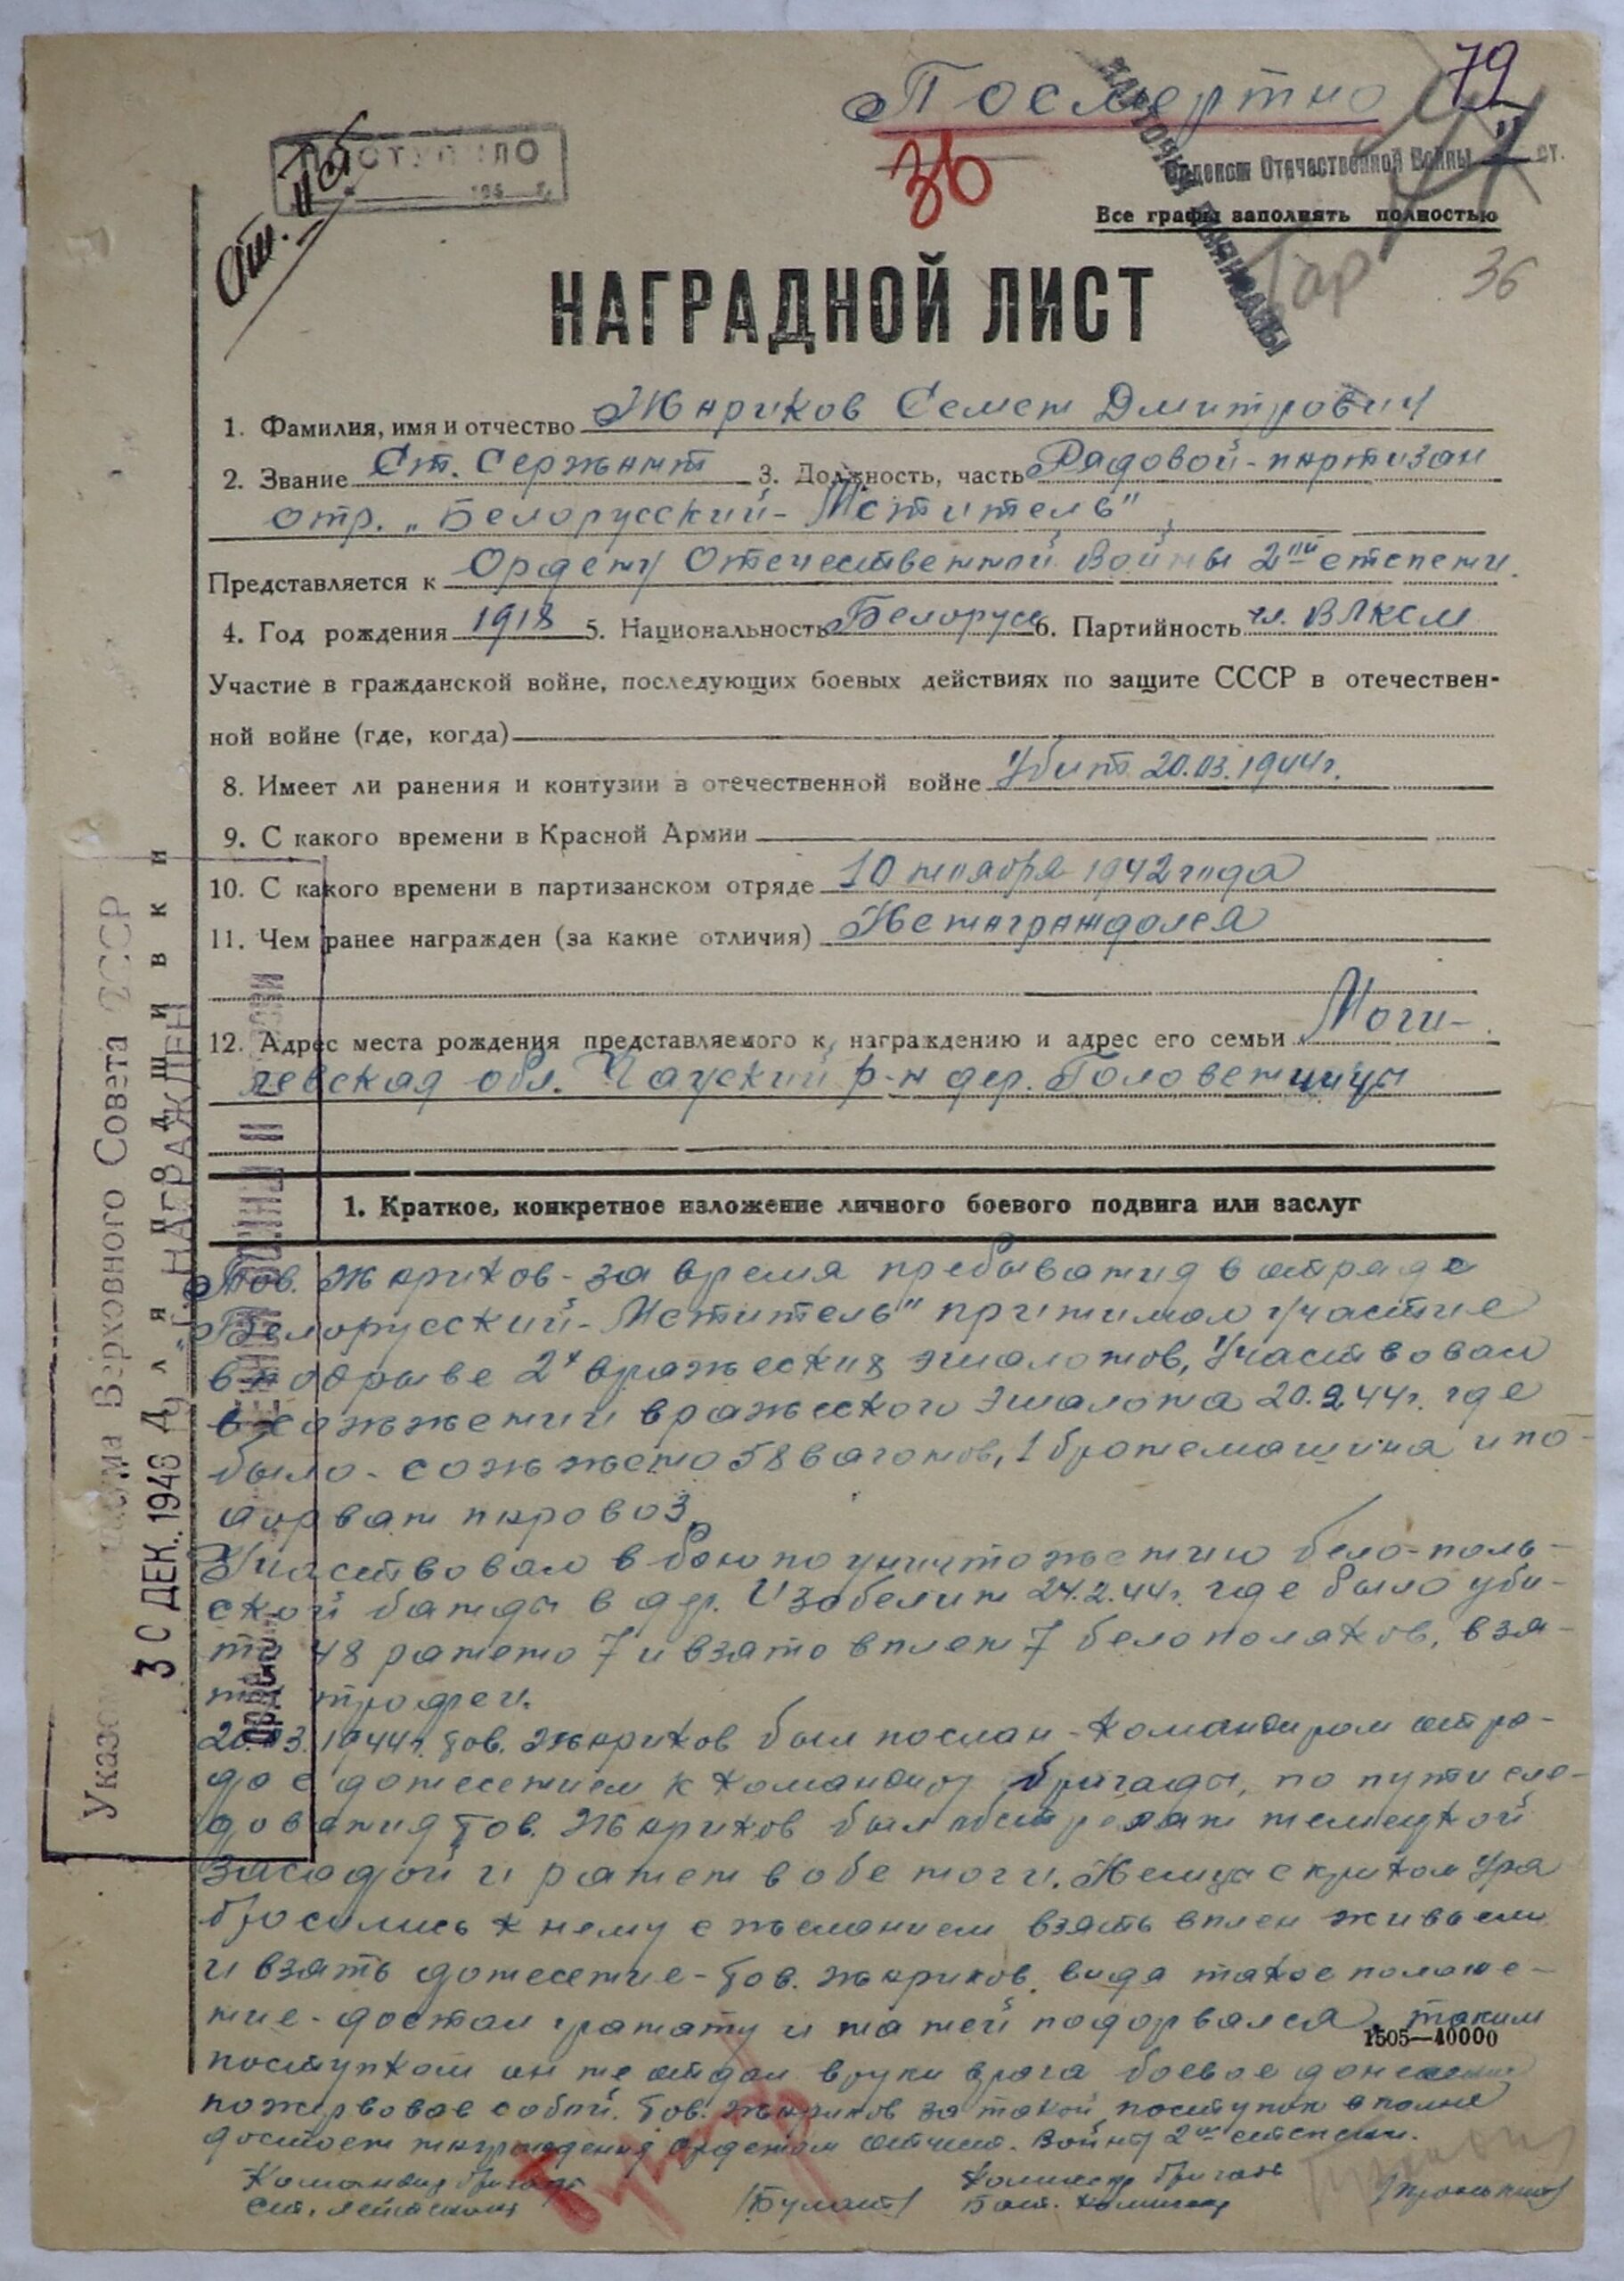 Посмертно
79
36
ПОСТУПИЛО
194 г.
От. II ст
Орденом Отечественной Войны II ст.
КАРТОЧКИ
Все графы заполнять полностью
Гар
36
НАГРАДНОЙ ЛИСТ
1. Фамилия, имя и отчество Жариков Семен Дмитрович
2. Звание Ст. Сержант 3. Должность, часть Рядовой-партизан
отр. „Белорусский-Мститель"
Представляется к Ордену Отечественной Войны 2ой степени.
4. Год рождения 1918 5. Национальность Белорус 6. Партийность чл. ВЛКСМ
Участие в гражданской войне, последующих боевых действиях по защите СССР в отечествен-
ной войне (где, когда)
8. Имеет ли ранения и контузии в отечественной войне Убит 20.03.1944г.
9. С какого времени в Красной Армии
10. С какого времени в партизанском отряде 10 ноября 1942 года
11. Чем ранее награжден (за какие отличия) Не награждался
12. Адрес места рождения представляемого к награждению и адрес его семьи Моги-
левская обл. Чауский р-н дер. Головенчицы
Для подшивки
Указом Верховного Совета СССР
3 С ДЕК. 1948 г. НАГРАЖДЕН
1. Краткое, конкретное изложение личного боевого подвига или заслуг
Тов. Жариков - за время пребывания в отряде
„Белорусский-Мститель" принимал участие
в подрыве 2х вражеских эшалонов, Участвовал
в сожжении вражеского эшалона 20.2.44г. где
было - сожжено 58 вагонов, 1 бронемашина и по-
дорван паровоз.
Участвовал в бою по уничтожению бело-поль-
ской банды в дер. Изобелин 24.2.44г. где было уби-
то 48 ранено 7 и взято в плен 7 белополяков, взя-
ты трофеи.
20.03.1944г. тов. Жариков был послан - командиром отря-
да с донесением к командиру бригады, по пути сле-
дования тов. Жариков был обстрелян немецкой
засадой и ранен в обе ноги. Немцы с криком Ура
бросились к нему с желанием взять в плен живьем
и взять донесение - тов. Жариков видя такое положе-
ние - достал гранату и на ней подорвался, таким
1505—10000
поступком он не отдал в руки врага боевое донесение
пожертвовав собой. Тов. Жариков за такой поступок вполне
достоен награждения Орденом отечест. Войны 2ой степени.
Командир бригады Комиссар бригады
Ст. лейтенант /Булант/ Бат. комиссар